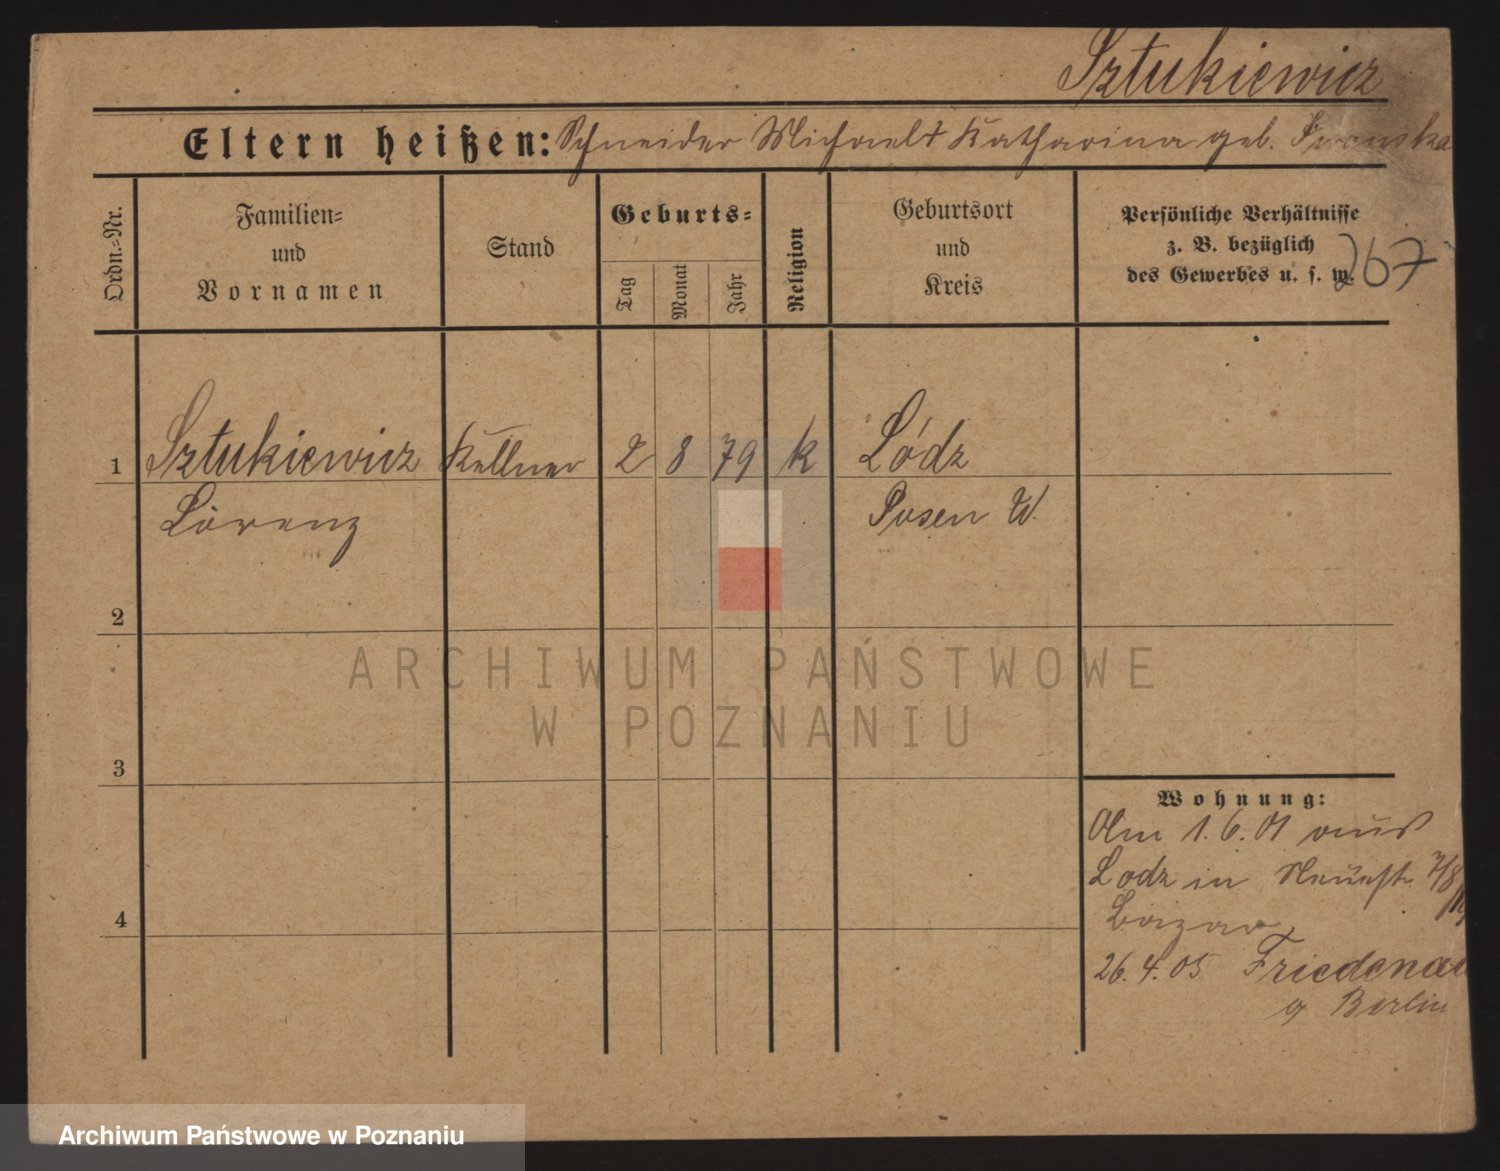 Sztukiewicz
Eltern heißen: Schneider Michael & Katharina geb. Iwanska
Ordn.=Nr.
Familien=
und
Vornamen
Stand
Geburts=
Tag
Monat
Jahr
Religion
Geburtsort
und
Kreis
Persönliche Verhältnisse
z. B. bezüglich
des Gewerbes u. s. w.
267
1 Sztukiewicz Kellner 2 8 79 k Lódz
Lorenz Posen W.
2
ARCHIWUM PAŃSTWOWE
W POZNANIU
3
Wohnung:
Am 1.6.01 aus
Lodz in Neuestr. 7/8
4
Bazar
26.4.05 Friedenau
Berlin
Archiwum Państwowe w Poznaniu